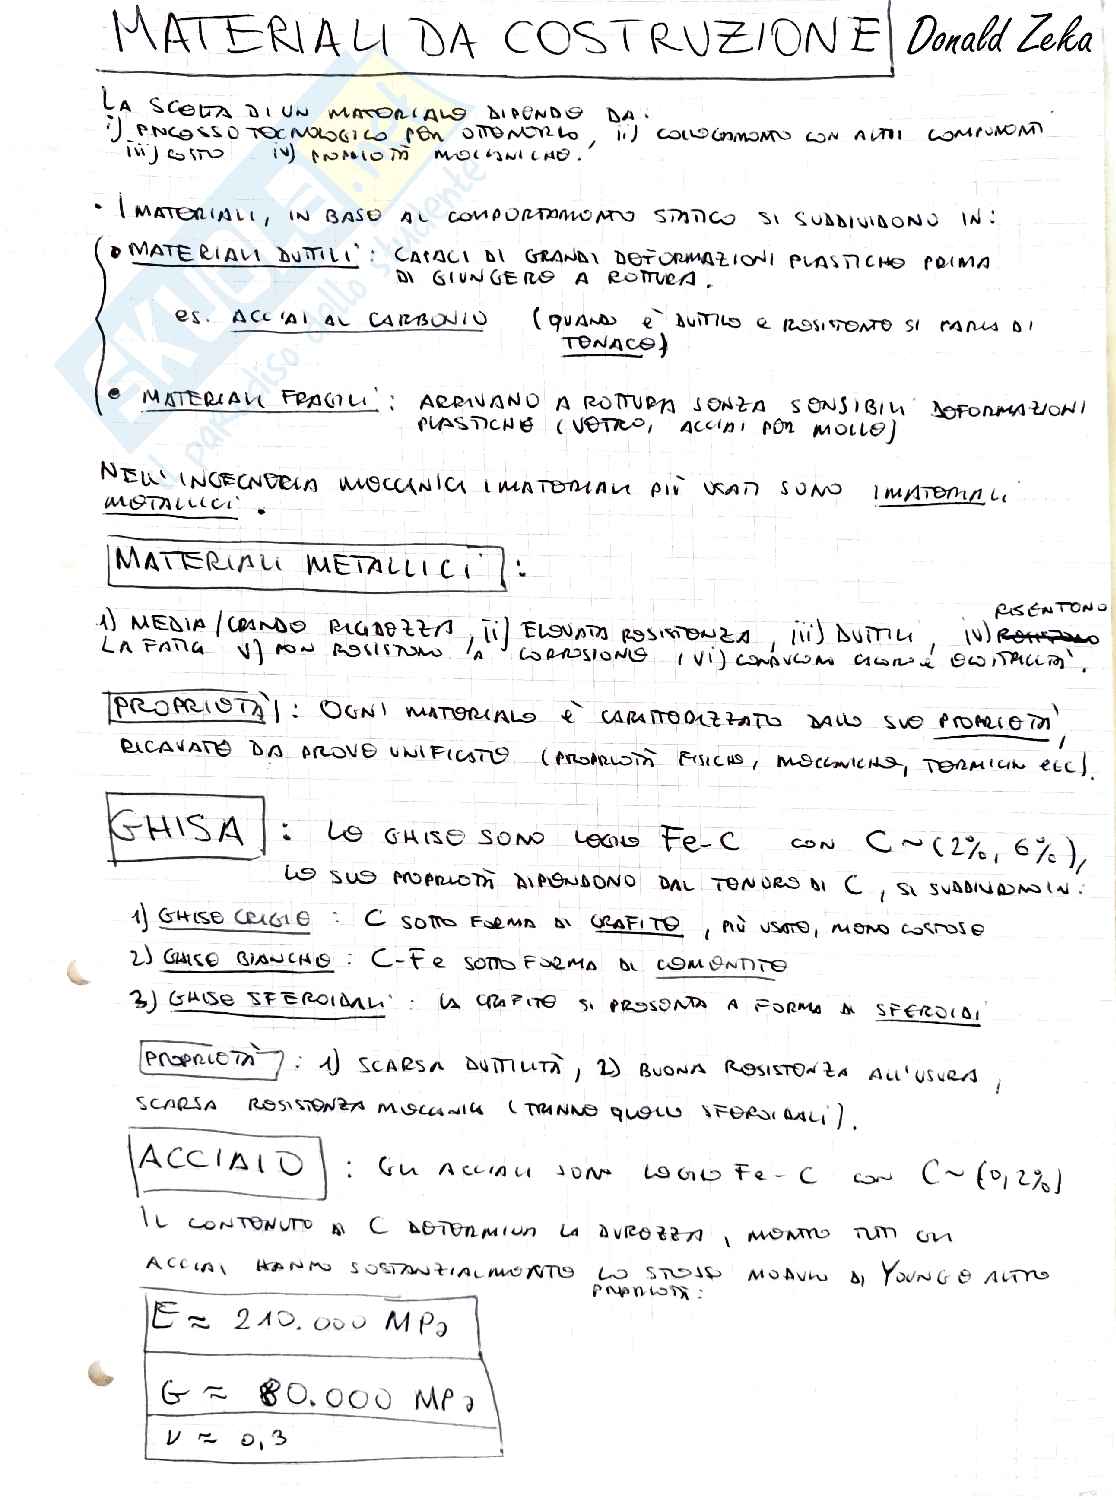 MATERIALI DA COSTRUZIONE Donald Zeka
LA SCELTA DI UN MATERIALE DIPENDE DA:
i) PROCESSO TECNOLOGICO PER OTTENERLO, ii) COLLEGAMENTO CON ALTRI COMPONENTI
iii) COSTO iv) PROPRIETÀ MECCANICHE.
• I MATERIALI, IN BASE AL COMPORTAMENTO STATICO SI SUDDIVIDONO IN:
• MATERIALI DUTTILI: CAPACI DI GRANDI DEFORMAZIONI PLASTICHE PRIMA
DI GIUNGERE A ROTTURA.
es. ACCIAI AL CARBONIO (QUANDO È DUTTILE E RESISTENTE SI PARLA DI
TENACE)
• MATERIALI FRAGILI: ARRIVANO A ROTTURA SENZA SENSIBILI DEFORMAZIONI
PLASTICHE (VETRO, ACCIAI PER MOLLE)
NELL'INGEGNERIA MECCANICA I MATERIALI PIÙ USATI SONO I MATERIALI
METALLICI.
MATERIALI METALLICI:
RISENTONO
1) MEDIA/GRANDE RIGIDEZZA, ii) ELEVATA RESISTENZA, iii) DUTTILI, iv)
LA FATICA v) NON RESISTONO A CORROSIONE, vi) CONDUCONO CALORE E ELETTRICITÀ.
PROPRIETÀ: OGNI MATERIALE È CARATTERIZZATO DALLE SUE PROPRIETÀ,
RICAVATE DA PROVE UNIFICATE (PROPRIETÀ FISICHE, MECCANICHE, TERMICHE ecc).
GHISA: LE GHISE SONO LEGHE Fe-C CON C~(2%, 6%),
LE SUE PROPRIETÀ DIPENDONO DAL TENORE DI C, SI SUDDIVIDONO IN:
1) GHISE GRIGIE: C SOTTO FORMA DI GRAFITE, PIÙ USATE, MENO COSTOSE
2) GHISE BIANCHE: C-Fe SOTTO FORMA DI CEMENTITE
3) GHISE SFEROIDALI: LA GRAFITE SI PRESENTA A FORMA DI SFEROIDI
PROPRIETÀ: 1) SCARSA DUTTILITÀ, 2) BUONA RESISTENZA ALL'USURA,
SCARSA RESISTENZA MECCANICA (TRANNE QUELLE SFEROIDALI).
ACCIAIO: GLI ACCIAI SONO LEGHE Fe-C CON C~(0,2%)
IL CONTENUTO DI C DETERMINA LA DUREZZA, MENTRE TUTTI GLI
ACCIAI HANNO SOSTANZIALMENTE LO STESSO MODULO DI YOUNG E ALTRE
PROPRIETÀ:
E ≈ 210.000 MPa
G ≈ 80.000 MPa
ν ≈ 0,3
SKUOLA.net
il paradiso dello studente